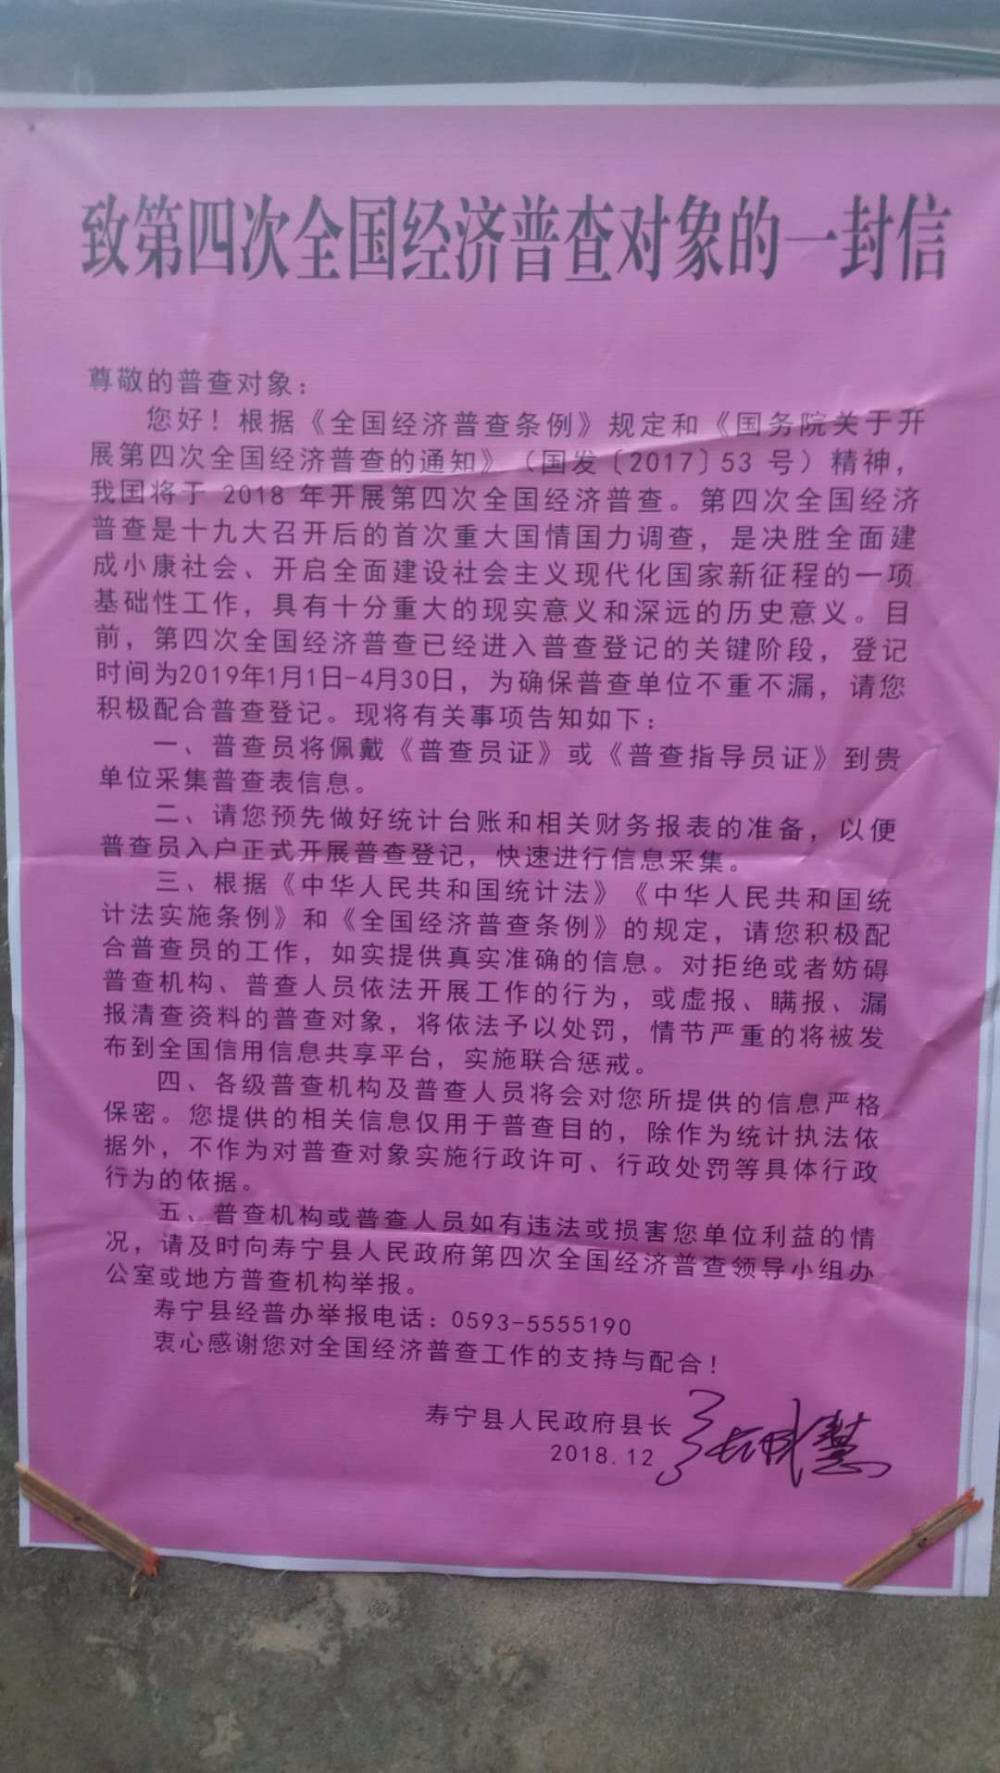 致第四次全国经济普查对象的一封信
尊敬的普查对象：
您好！根据《全国经济普查条例》规定和《国务院关于开
展第四次全国经济普查的通知》（国发〔2017〕53 号）精神，
我国将于 2018 年开展第四次全国经济普查。第四次全国经济
普查是十九大召开后的首次重大国情国力调查，是决胜全面建
成小康社会、开启全面建设社会主义现代化国家新征程的一项
基础性工作，具有十分重大的现实意义和深远的历史意义。目
前，第四次全国经济普查已经进入普查登记的关键阶段，登记
时间为2019年1月1日-4月30日，为确保普查单位不重不漏，请您
积极配合普查登记。现将有关事项告知如下：
一、普查员将佩戴《普查员证》或《普查指导员证》到贵
单位采集普查表信息。
二、请您预先做好统计台账和相关财务报表的准备，以便
普查员入户正式开展普查登记，快速进行信息采集。
三、根据《中华人民共和国统计法》《中华人民共和国统
计法实施条例》和《全国经济普查条例》的规定，请您积极配
合普查员的工作，如实提供真实准确的信息。对拒绝或者妨碍
普查机构、普查人员依法开展工作的行为，或虚报、瞒报、漏
报清查资料的普查对象，将依法予以处罚，情节严重的将被发
布到全国信用信息共享平台，实施联合惩戒。
四、各级普查机构及普查人员将会对您所提供的信息严格
保密。您提供的相关信息仅用于普查目的，除作为统计执法依
据外，不作为对普查对象实施行政许可、行政处罚等具体行政
行为的依据。
五、普查机构或普查人员如有违法或损害您单位利益的情
况，请及时向寿宁县人民政府第四次全国经济普查领导小组办
公室或地方普查机构举报。
寿宁县经普办举报电话：0593-5555190
衷心感谢您对全国经济普查工作的支持与配合！
寿宁县人民政府县长
2018.12